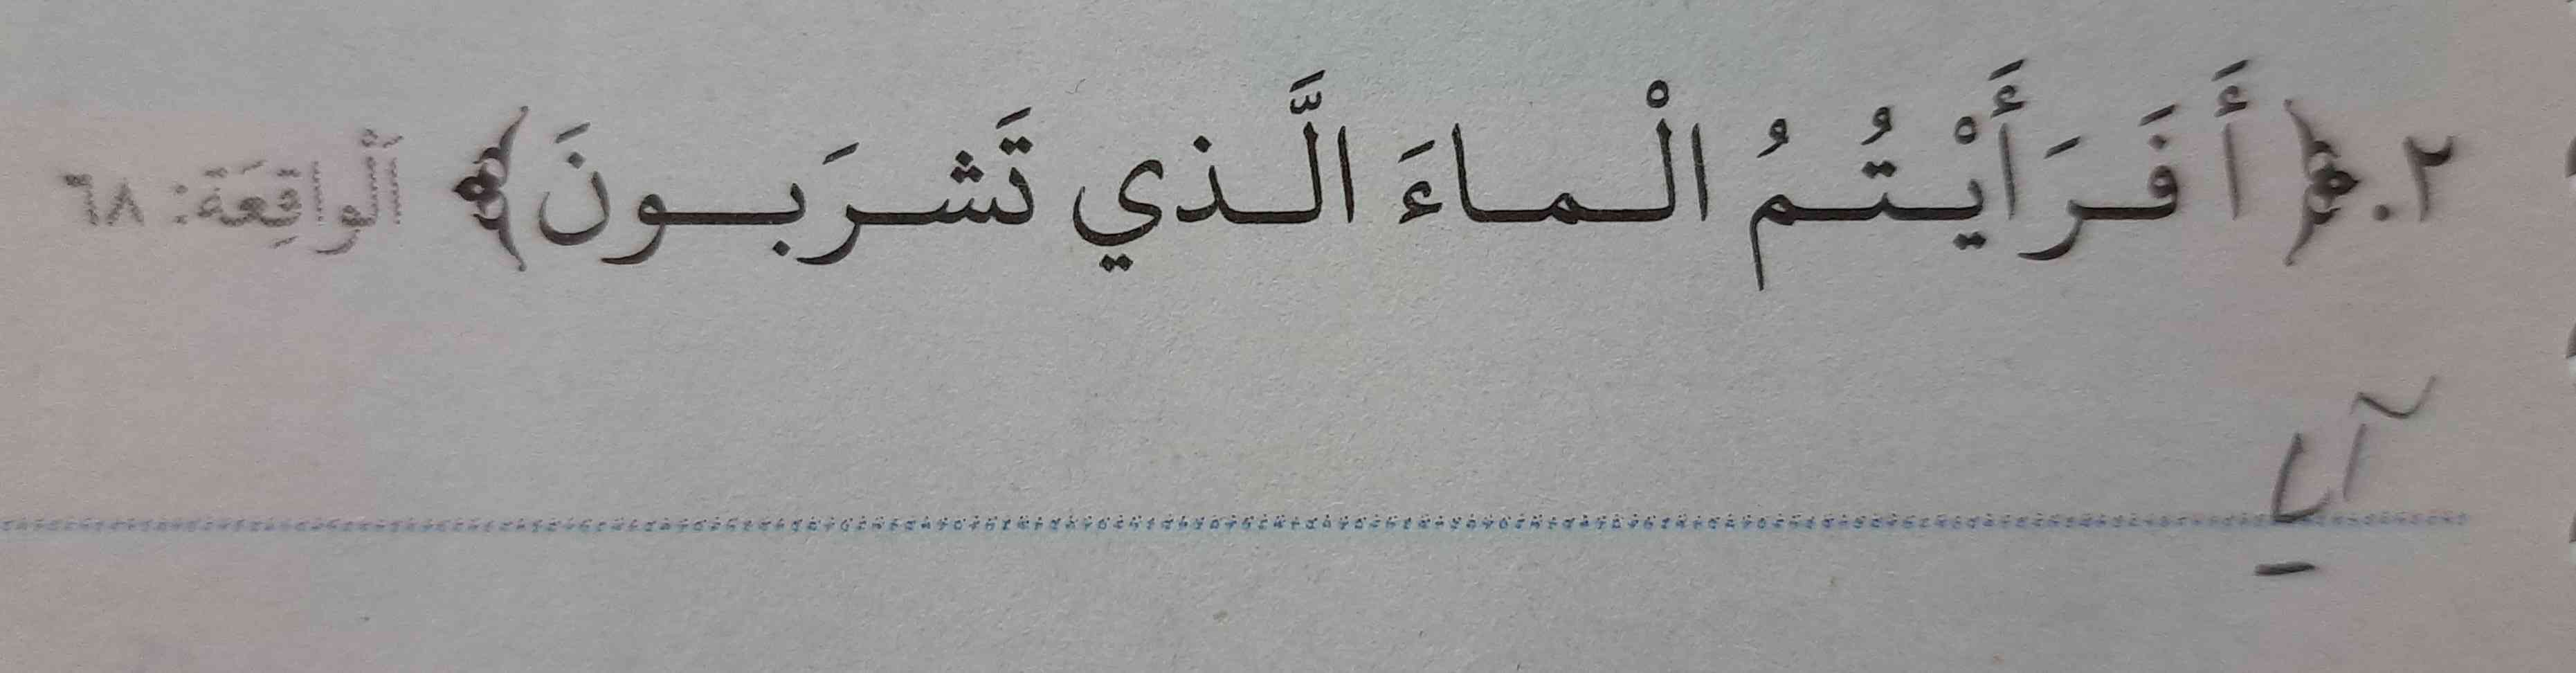 ٢. ﴿أَ فَرَأَيْتُمُ الْماءَ الَّذي تَشرَبونَ﴾ اَلْواقِعَة: ٦٨
آیا